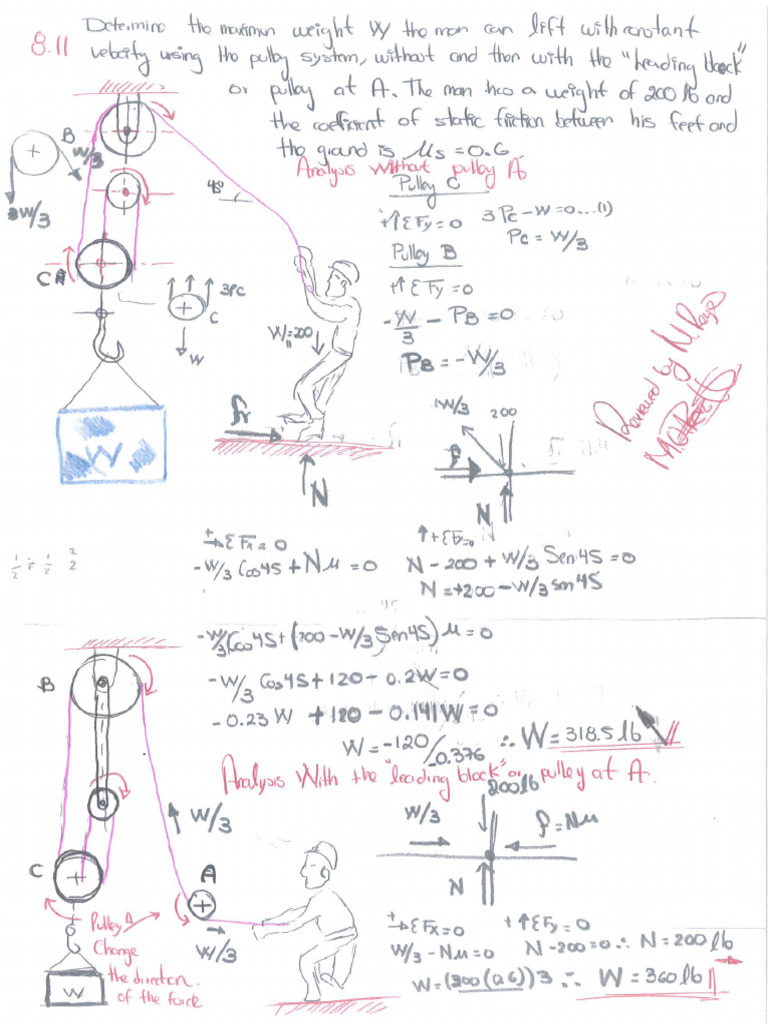 8.11 Determine the maximun weight W the man can lift with constant
velocity using the pulley system, without and then with the "leading block"
or pulley at A. The man has a weight of 200 lb and
the coefficient of static friction between his feet and
the ground is μs = 0.6.
Analysis without pulley A.
Pulley C
+↑ΣFy=0 3Pc-W=0...(1)
Pc = W/3
Pulley B
+↑ΣFy=0
-W/3 - PB = 0
PB = -W/3
B
W/3
W/3
45°
C
A
3PC
C
W
W=200
W
fr
N
W/3
200
f
N
Reviewed by
+→ΣFx=0
-W/3 Cos45 + Nμ = 0
↑+ΣFy=0
N - 200 + W/3 Sen45 = 0
N = +200 - W/3 sen45
-W/3 Cos45 + (200 - W/3 Sen45) μ = 0
-W/3 Cos45 + 120 - 0.2W = 0
-0.23 W + 120 - 0.141W = 0
W = -120/-0.376 ∴ W = 318.5 lb
Analysis With the "leading block" or pulley at A.
B
C
W/3
A
W/3
Pulley A
Change
the direction
of the force
W
200lb
W/3
f = Nμ
N
+→ΣFx=0
W/3 - Nμ = 0
+↑ΣFy=0
N-200=0 ∴ N=200 lb
W = (200(0.6))3 ∴ W = 360 lb